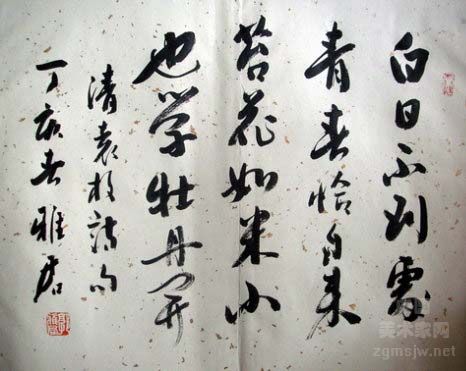 白日不到處
青春恰自来
苔花如米小
也学牡丹开
清袁枚诗句
丁亥春雅君
美术家网
zgmsjw.net